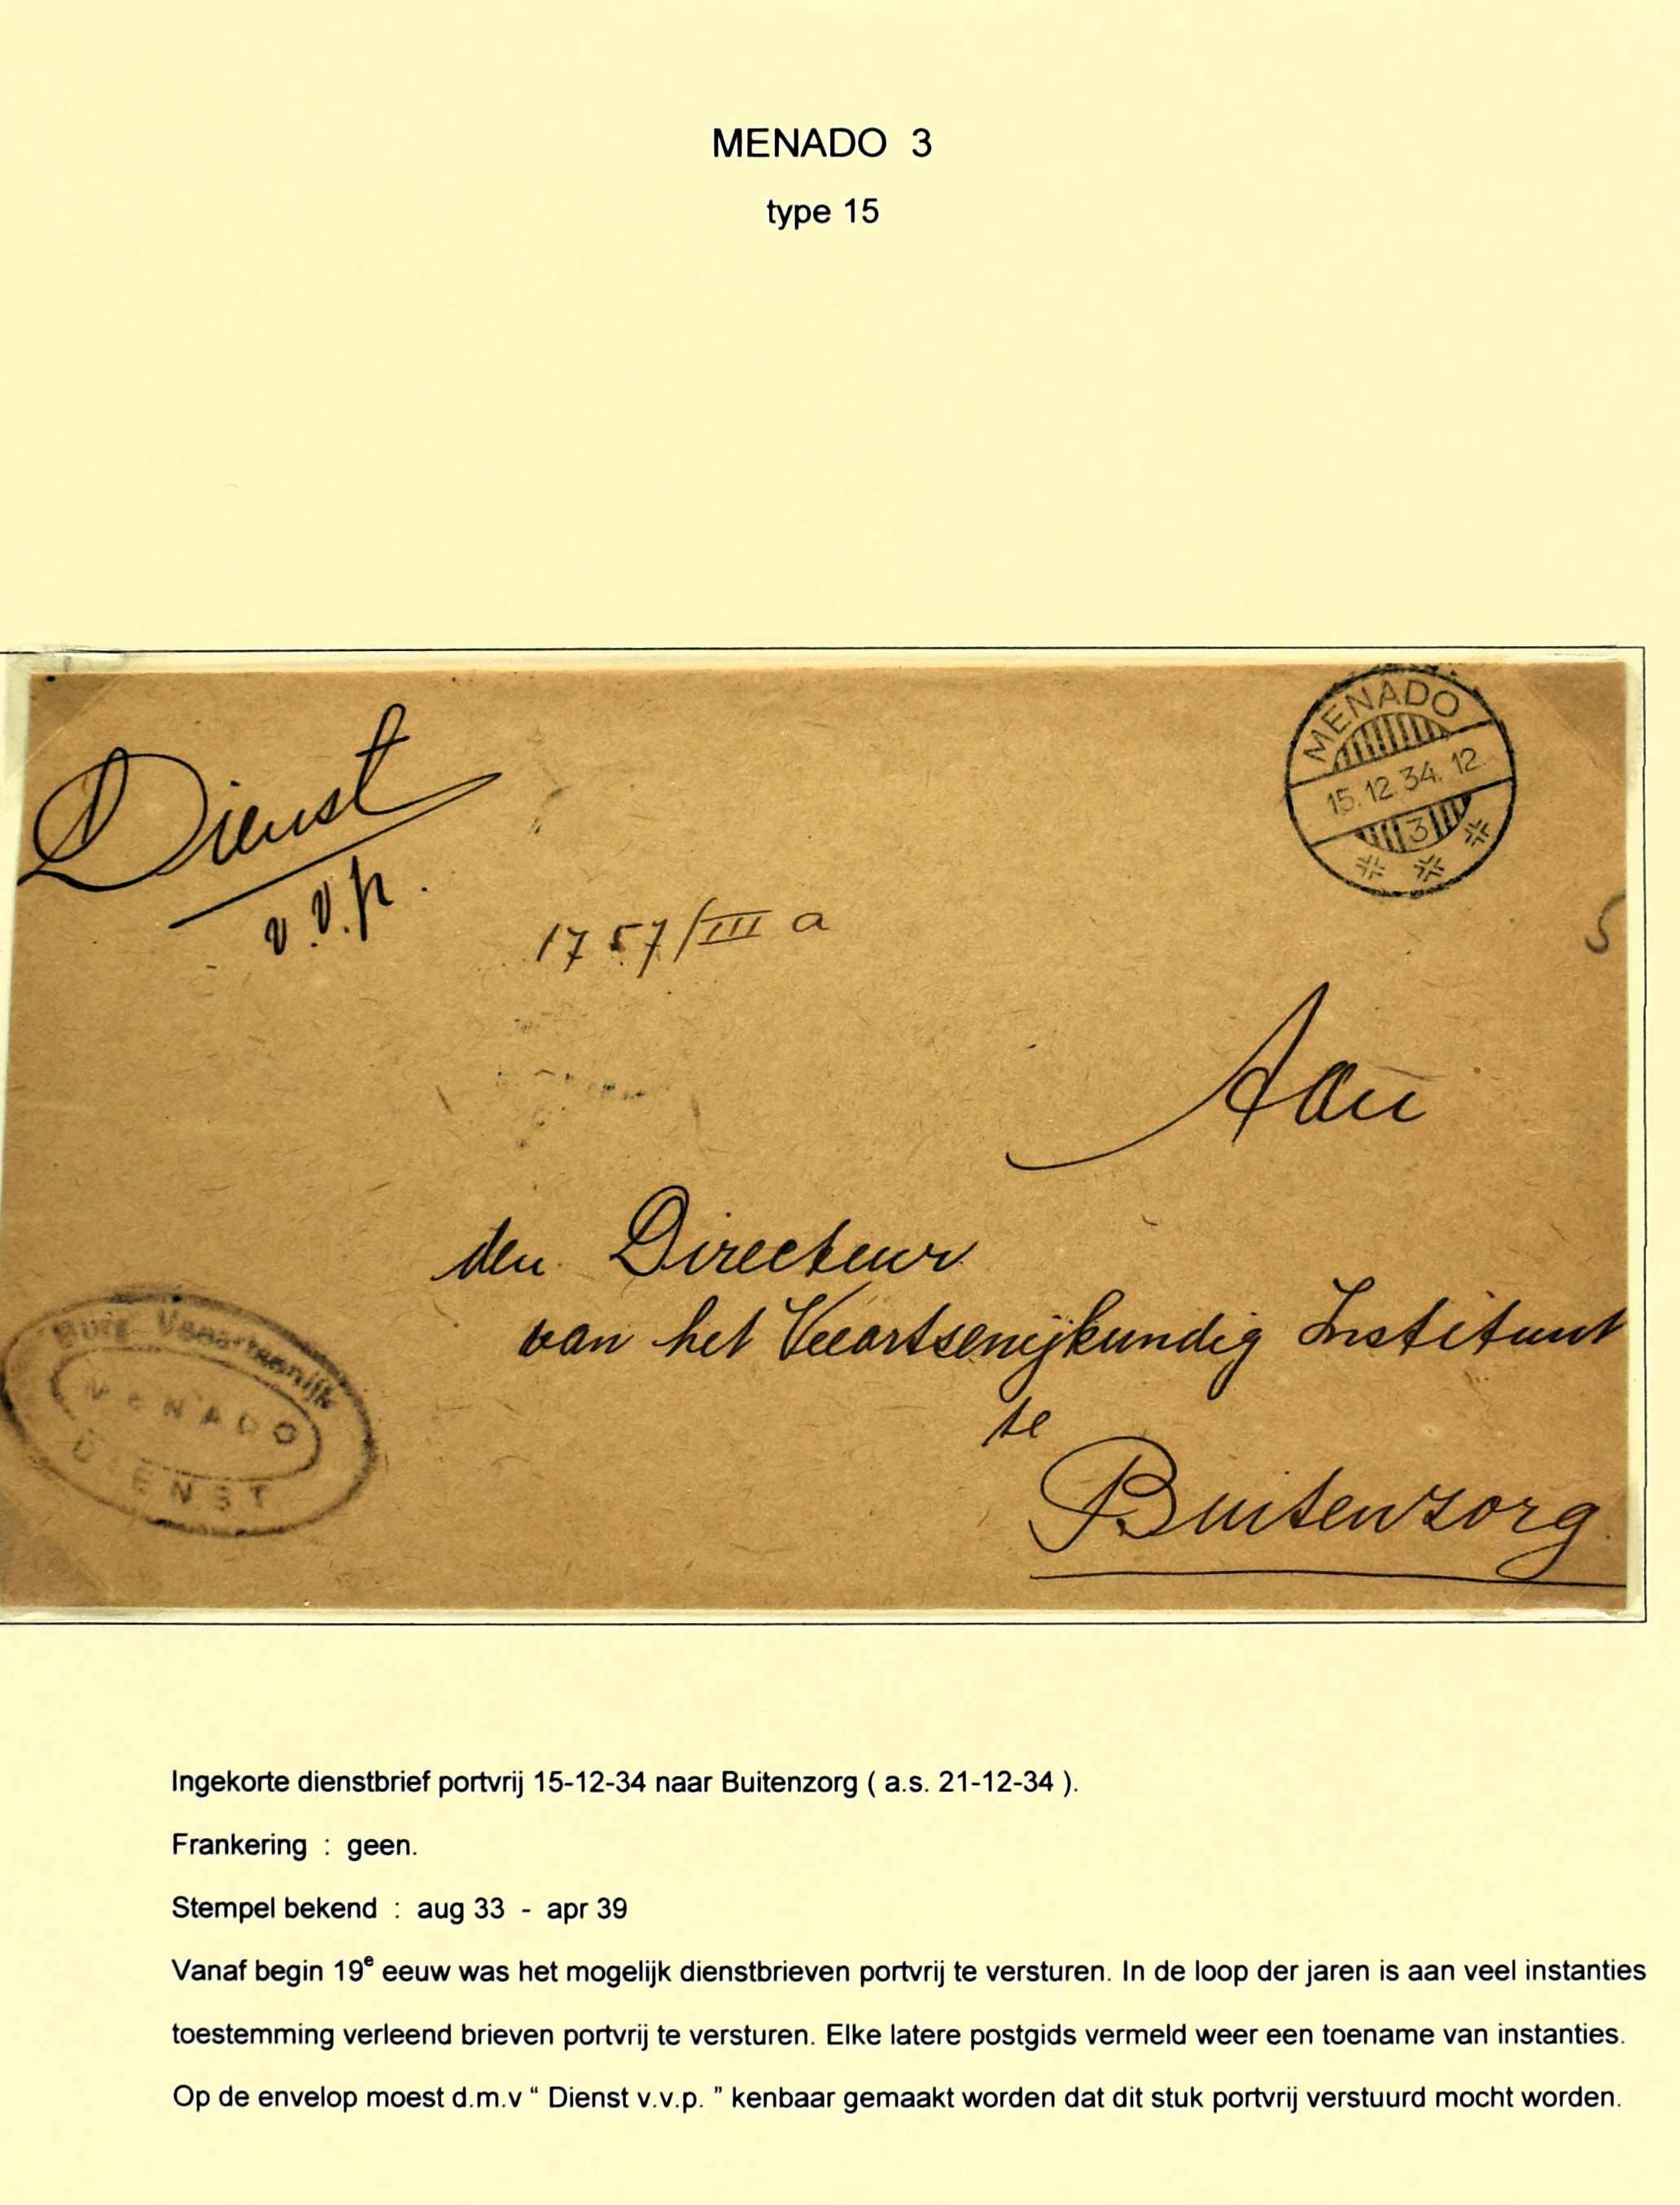 MENADO 3
type 15
Dienst
v.v.p.
MENADO
15.12.34.12
3
1757/III a
Aan
den Directeur
van het Veeartsenijkundig Instituut
te
Buitenzorg
Burg. Veeartsenijk
MENADO
DIENST
Ingekorte dienstbrief portvrij 15-12-34 naar Buitenzorg ( a.s. 21-12-34 ).
Frankering : geen.
Stempel bekend : aug 33 - apr 39
Vanaf begin 19e eeuw was het mogelijk dienstbrieven portvrij te versturen. In de loop der jaren is aan veel instanties
toestemming verleend brieven portvrij te versturen. Elke latere postgids vermeld weer een toename van instanties.
Op de envelop moest d.m.v “ Dienst v.v.p. ” kenbaar gemaakt worden dat dit stuk portvrij verstuurd mocht worden.